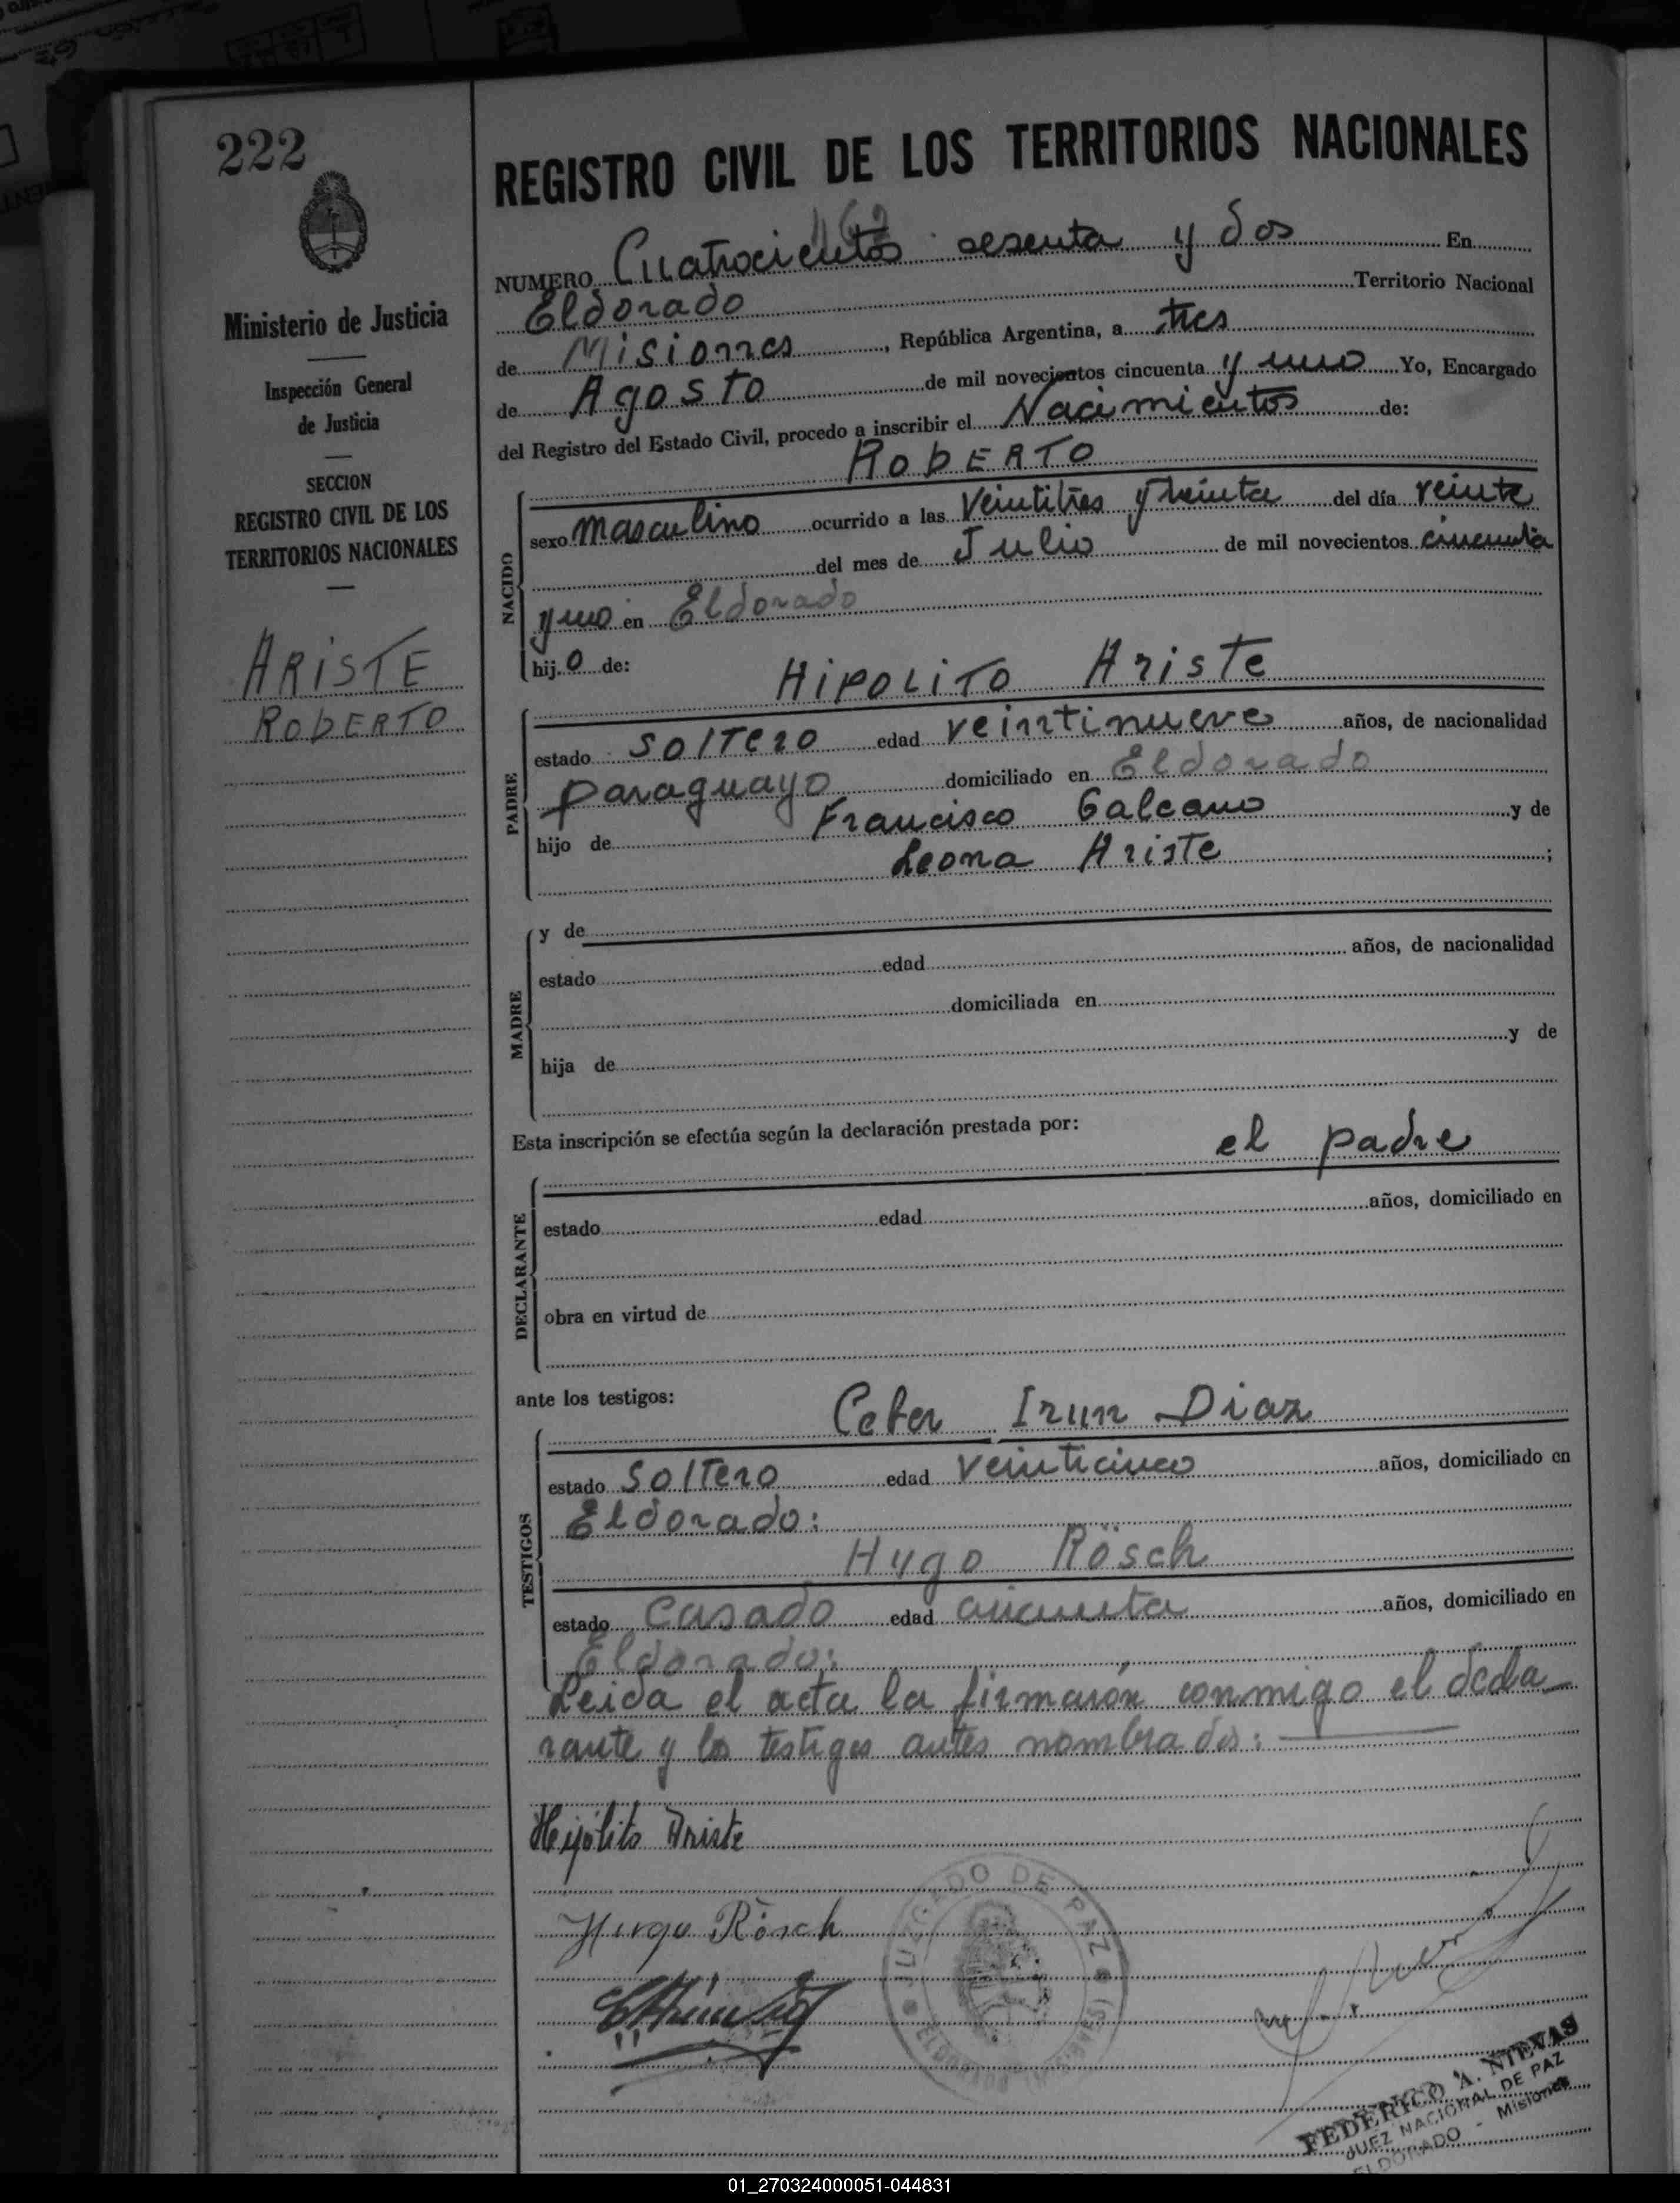 222
Ministerio de Justicia
Inspección General
de Justicia
SECCION
REGISTRO CIVIL DE LOS
TERRITORIOS NACIONALES
ARISTE
ROBERTO
REGISTRO CIVIL DE LOS TERRITORIOS NACIONALES
462
NUMERO Cuatrocientos sesenta y dos En
Eldorado Territorio Nacional
de Misiones, República Argentina, a tres
de Agosto de mil novecientos cincuenta y uno Yo, Encargado
del Registro del Estado Civil, procedo a inscribir el Nacimientos de:
ROBERTO
NACIDO
sexo masculino ocurrido a las veintitres y treinta del día veinte
del mes de Julio de mil novecientos cincuenta
y uno en Eldorado
hijo de: HIPOLITO Ariste
PADRE
estado soltero edad veintinueve años, de nacionalidad
paraguayo domiciliado en Eldorado
hijo de Francisco Galeano y de
Leona Ariste ;
MADRE
y de
estado edad años, de nacionalidad
domiciliada en
hija de y de
Esta inscripción se efectúa según la declaración prestada por: el padre
DECLARANTE
estado edad años, domiciliado en
obra en virtud de
ante los testigos: Irun Diaz
TESTIGOS
estado soltero edad veinticinco años, domiciliado en
Eldorado:
Hugo Rösch
estado casado edad cincuenta años, domiciliado en
Eldorado:
Leida el acta la firmarón conmigo el decla
rante y los testigos antes nombrados:
Hipólito Ariste
Hugo Rösch
JUZGADO DE PAZ
FEDERICO A. NIEVAS
JUEZ NACIONAL DE PAZ
ELDORADO - Misiones
01_270324000051-044831